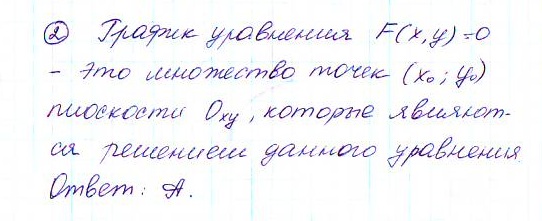 ② График уравнения F(x,y)=0
- это множество точек (x₀; y₀)
плоскости Oxy, которые являют-
ся решением данного уравнения
Ответ: А.